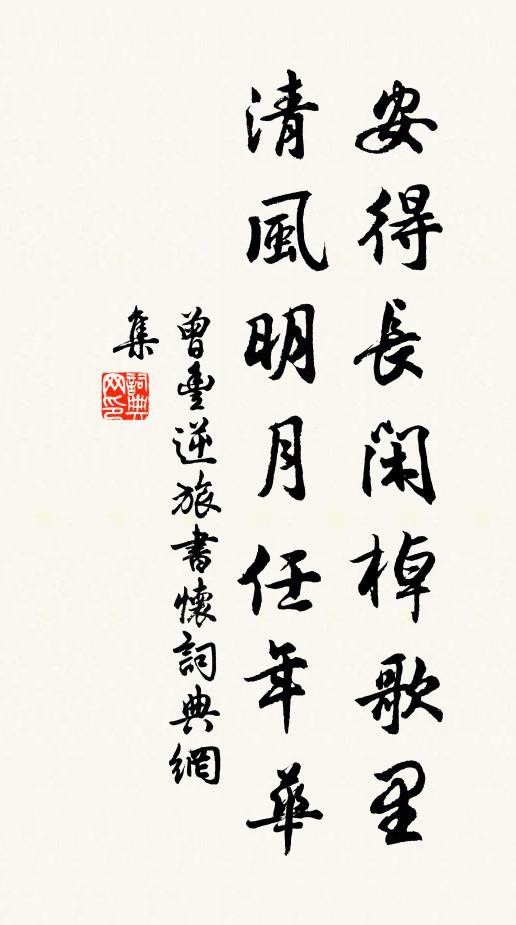 安得長閑棹歌里
清風明月任年華
曾豐逆旅書懷詞典網
集
詞典
网印